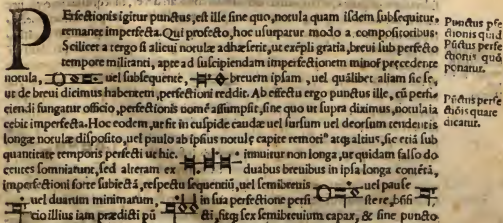 PErfectionis igitur punctus, est ille sine quo, notula quam isdem subsequitur,
remanet imperfecta. Qui profecto, hoc usurpatur modo a compositoribus
Scilicet a tergo si alicui notulæ adhæserit, ut exẽpli gratia, brevi sub perfecto
tempore militanti, apte ad suscipiendam imperfectionem minor præcedente
notula, uel subsequente, breuem ipsam uel quãlibet aliam sic se,
ut de breui dicimus habentem, perfectioni reddit. Ab effectu ergo punctus ille, cũ perfi-
ciendi fungatur officio, perfectionis nomẽ assumpsit, sine quo ut supra diximus, notula ia
cebit imperfecta. Hoc eodem, ut fit in cuspide caudæ uel sursum uel deorsum tendentis
longæ notulæ disposito, uel paulo ab ipsius notulę capite remoti⁹ atq; altius, sic etiã sub
quantitate temporis perfecti ut hic. innuitur non longa, ut quidam falso do
centes somniatunt, sed alteram ex duabus breuibus in ipsa longa contẽtã,
imperfectioni forte subiectã, respectu sequentiũ, uel semibreuis uel pause
uel duarum minimarum, in sua perfectione persistere, bñfi
cio illius iam prædicti pũcti, sitq; sex semibreuium capax, & sine puncto
Punctus pfe
ctionis quid
Pũctus perfe
ctionis quo
ponatur.
Pũctus perfe
ctiõis quare
dicatur.